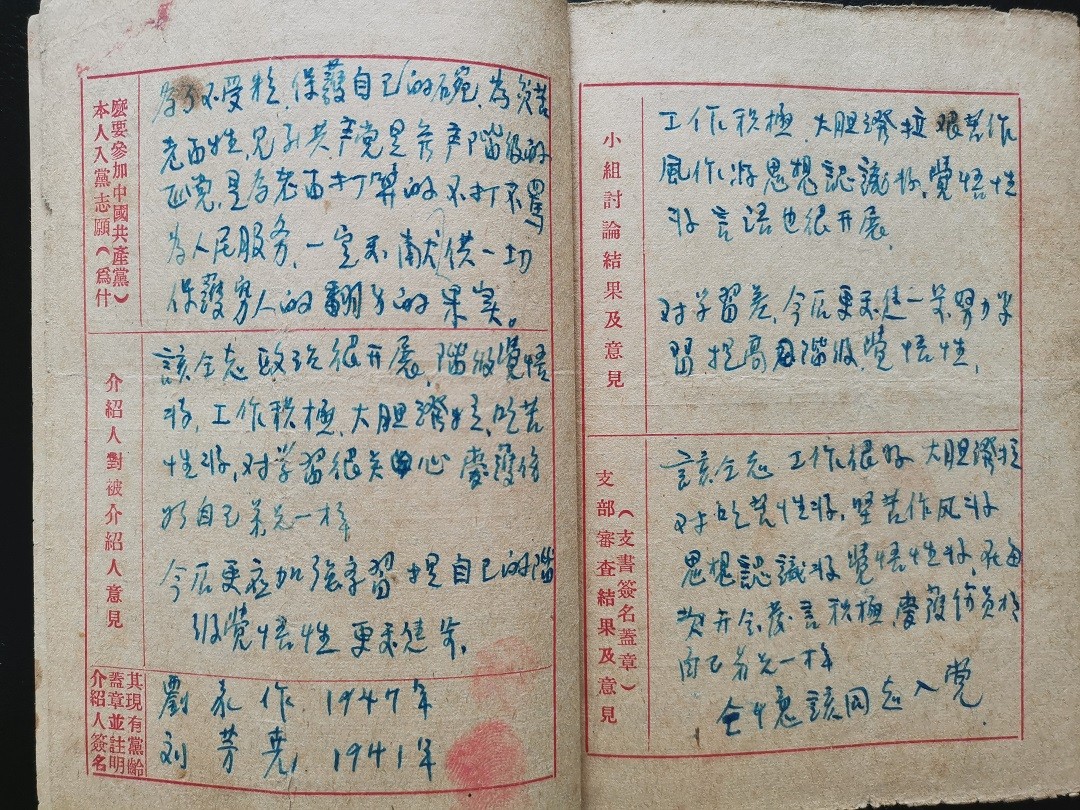 本人入黨志願（爲什
麽要參加中國共產黨）
为了不受粒，保護自己的碗，为受苦
老百性，兄弟共产党是无产階級的
政党，是为老百打算的不打不罵
为人民服务，一定要献供一切
保護窮人的翻身的果实。
介紹人對被介紹人意見
該仝志政治很开展，階級覺悟
好，工作积極，大胆，吃苦
性好，对学習很关心愛護伤
如自己弟兄一样
今后更应加強学習提自己的階
級覺悟性更要進步。
介紹人簽名
蓋章並註明
其現有黨齡
劉永作 1947年
刘芳堯 1941年
小組討論結果及意見
工作积極，大胆 艰苦作
風作好思想認識好，覺悟性
好言語也很开展，
对学習差，今后更要進一步努力学
習提高階級覺悟性，
支部審查結果及意見
（支書簽名蓋章）
該仝志工作很好大胆
对吃苦性好，坚苦作风好
思想認識好覺悟性好，在每
次开会發言积極，愛護伤員於
自己弟兄一样
仝意該同志入党，